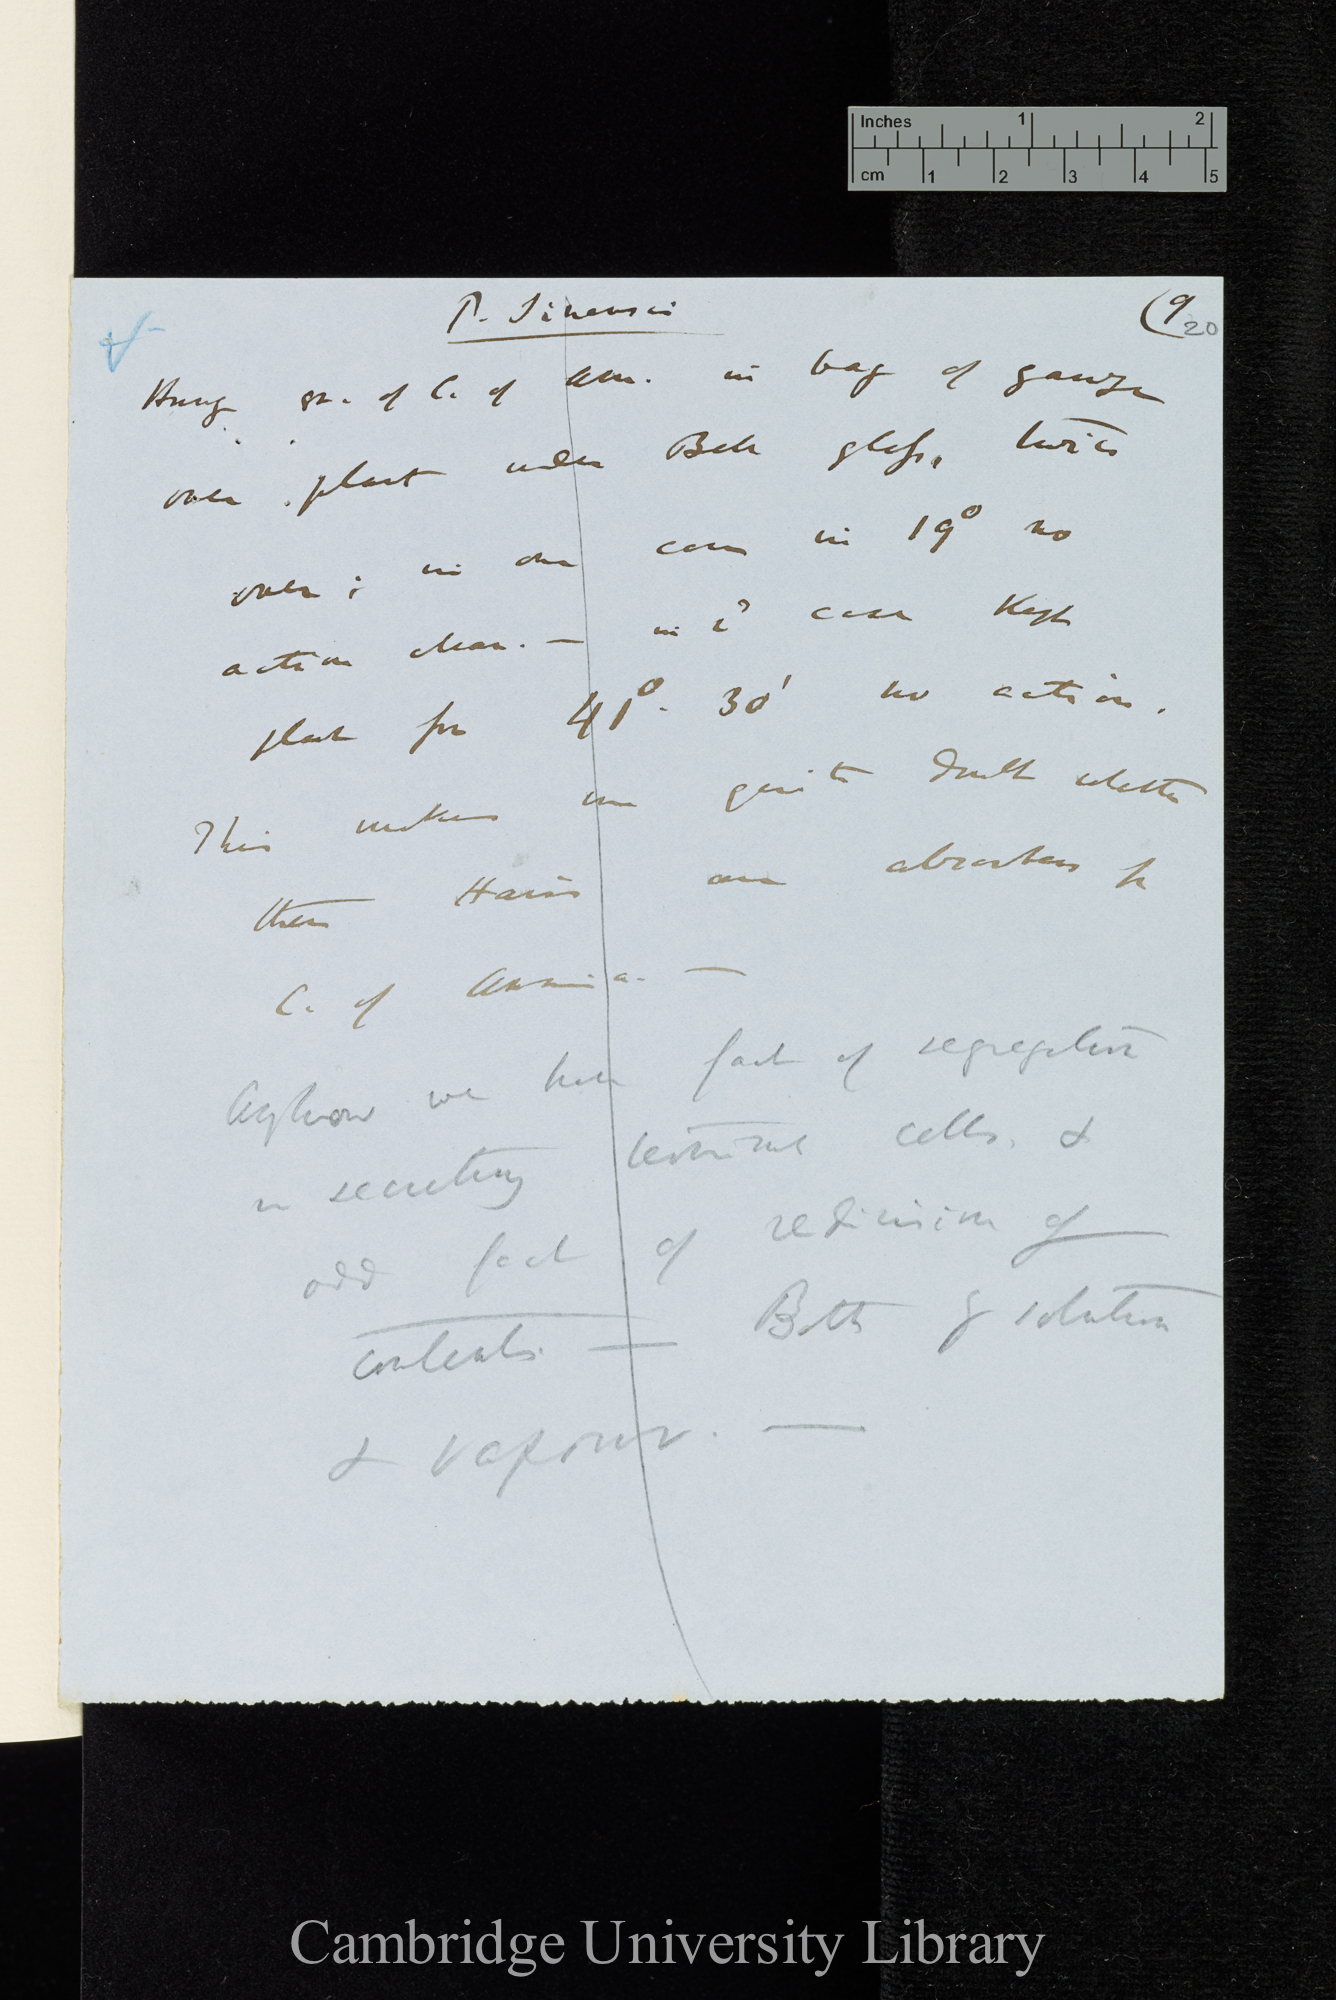 Inches 1 2
cm 1 2 3 4 5
P. Sinensis
(9
20
Hung gr. of C. of Am. in bag of gauze
over plant under Bell glass, twice
over; in one case in 19° no
action clear. — in 2d case kept
plant for 41°. 30' no action.
This makes me quite doubt whether
these Hairs are absorbers for
C. of Ammonia. —
Anyhow we have fact of segregation
in secreting terminal cells. &
odd fact of redivision of
contents. — Both of solution
& vapour. —
Cambridge University Library